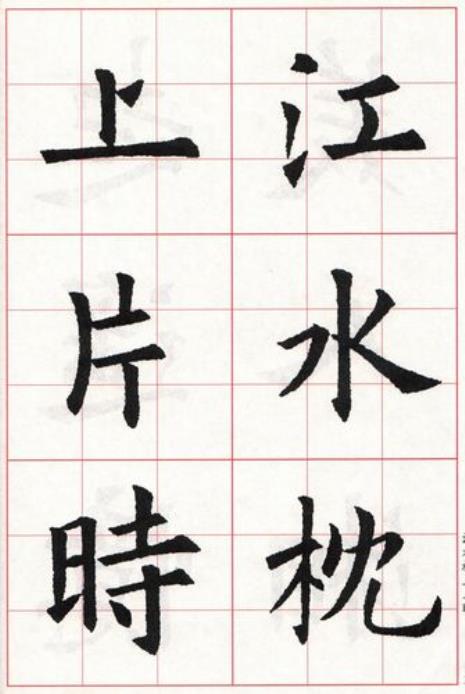 江水枕
上片時